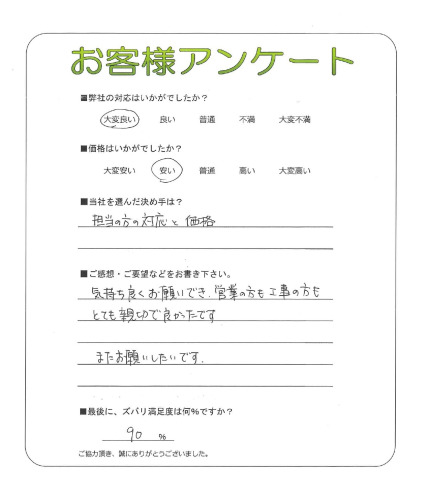 お客様アンケート
■弊社の対応はいかがでしたか?
大変良い 良い 普通 不満 大変不満
■価格はいかがでしたか?
大変安い 安い 普通 高い 大変高い
■当社を選んだ決め手は?
担当の方の対応と価格
■ご感想・ご要望などをお書き下さい。
気持ち良くお願いでき、営業の方も工事の方も
とても親切で良かったです
またお願いしたいです.
■最後に、ズバリ満足度は何%ですか?
90 %
ご協力頂き、誠にありがとうございました。